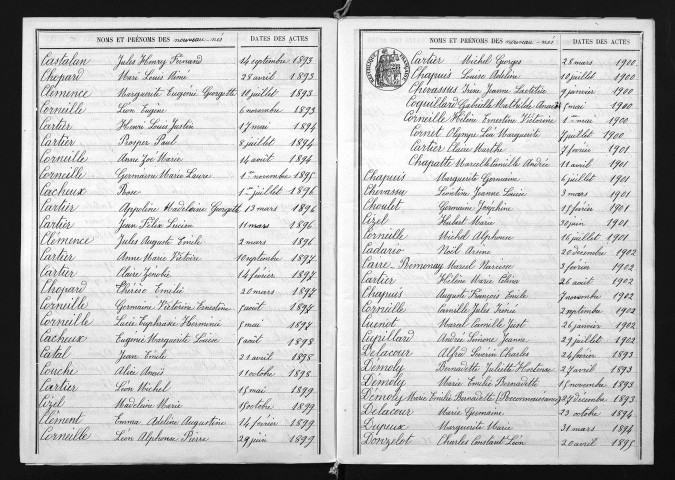 NOMS ET PRÉNOMS DES nouveau-nés DATES DES ACTES
Castalan Jules Henry Fernand 14 septembre 1893
Chopard Marie Louis Aimé 28 avril 1893
Clémence Marguerite Eugénie Georgette 10 juillet 1893
Corneille Léon Eugène 6 novembre 1893
Cartier Henri Louis Justin 17 mai 1894
Cartier Prosper Paul 8 juillet 1894
Corneille Anne Zoé Marie 14 août 1894
Corneille Germaine Marie Laure 1er novembre 1895
Cacheux Rose 1er juillet 1896
Cartier Appoline Madeleine Georgette 13 mars 1896
Cartier Jean Félix Lucien 11 mars 1896
Clémence Jules Auguste Emile 2 mars 1896
Cartier Anne Marie Victoire 10 septembre 1897
Cartier Claire Zénobie 14 février 1897
Chopard Thérèse Emilie 20 mars 1897
Corneille Germaine Victorine Ernestine août 1897
Corneille Lucie Euphrasie Herminie mai 1897
Cacheux Eugénie Marguerite Louise août 1898
Catal Jean Emile 21 avril 1898
Couche Alice Anaïs 11 octobre 1898
Cartier Léon Michel 15 mai 1899
Cizel Madeleine Marie octobre 1899
Clément Emma Adeline Augustine 14 février 1899
Corneille Léon Alphonse Pierre 29 juin 1899
NOMS ET PRÉNOMS DES nouveau-nés DATES DES ACTES
Cartier Michel Georges 28 mars 1900
Chapuis Louise Adeline 10 juillet 1900
Chevassus Irène Jeanne Laetitia 9 janvier 1900
Coquillard Gabrielle Mathilde mai 1900
Corneille Hélène Ernestine Victorine 1er mai 1900
Cornet Olympe Léa Marguerite 7 juillet 1900
Cartier Claire Marthe 7 février 1901
Chapatte Marcelle Camille Andrée 11 avril 1901
Chapuis Marguerite Germaine 6 juillet 1901
Chevassu Léontine Jeanne Louise 3 mars 1901
Choulet Germaine Joséphine 15 février 1901
Cizel Hubert Marie juin 1901
Corneille Michel Alphonse 16 juillet 1901
Cadario Noël Arsène 20 décembre 1902
Carre Remonay Marcel Narcisse 3 février 1902
Cartier Hélène Marie Célina 26 août 1902
Chapuis Auguste François Emile 7 novembre 1902
Corneille Camille Jules Irénée 2 septembre 1902
Cuenot Marcel Camille Just 26 janvier 1902
Cupillard Andrée Simone Jeanne 29 juillet 1902
Delacour Alfred Séverin Charles 24 février 1893
Démoly Bernadette Juliette Hortense 27 avril 1893
Démoly Marie Emilie Bernadette 15 novembre 1893
Démoly Marie Emilie Bernadette (Reconnaissance) 27 décembre 1893
Delacour Marie Germaine 23 octobre 1894
Dupeux Marguerite Marie 31 mars 1894
Donzelot Charles Constant Léon 20 avril 1895